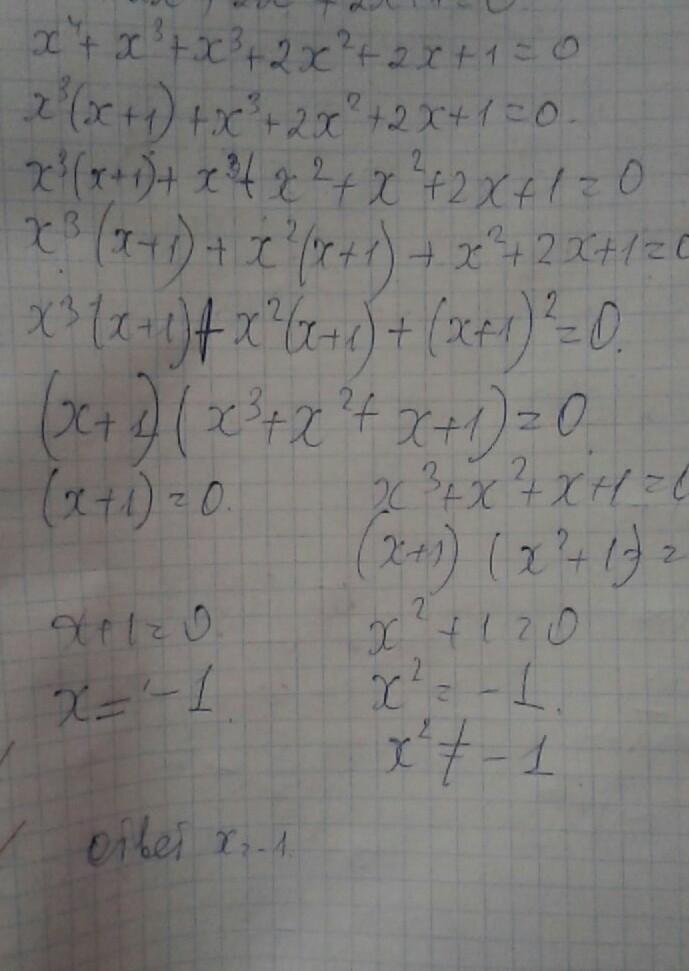 x⁴ + x³ + x³ + 2x² + 2x + 1 = 0
x³(x+1) + x³ + 2x² + 2x + 1 = 0.
x³(x+1) + x³ + x² + x² + 2x + 1 = 0
x³(x+1) + x²(x+1) + x² + 2x + 1 = 0
x³(x+1) + x²(x+1) + (x+1)² = 0.
(x+1)(x³ + x² + x + 1) = 0.
(x+1) = 0. x³ + x² + x + 1 = 0
(x+1) (x² + 1) =
x + 1 = 0 x² + 1 = 0
x = -1. x² = -1.
x² ≠ -1
ответ x = -1.